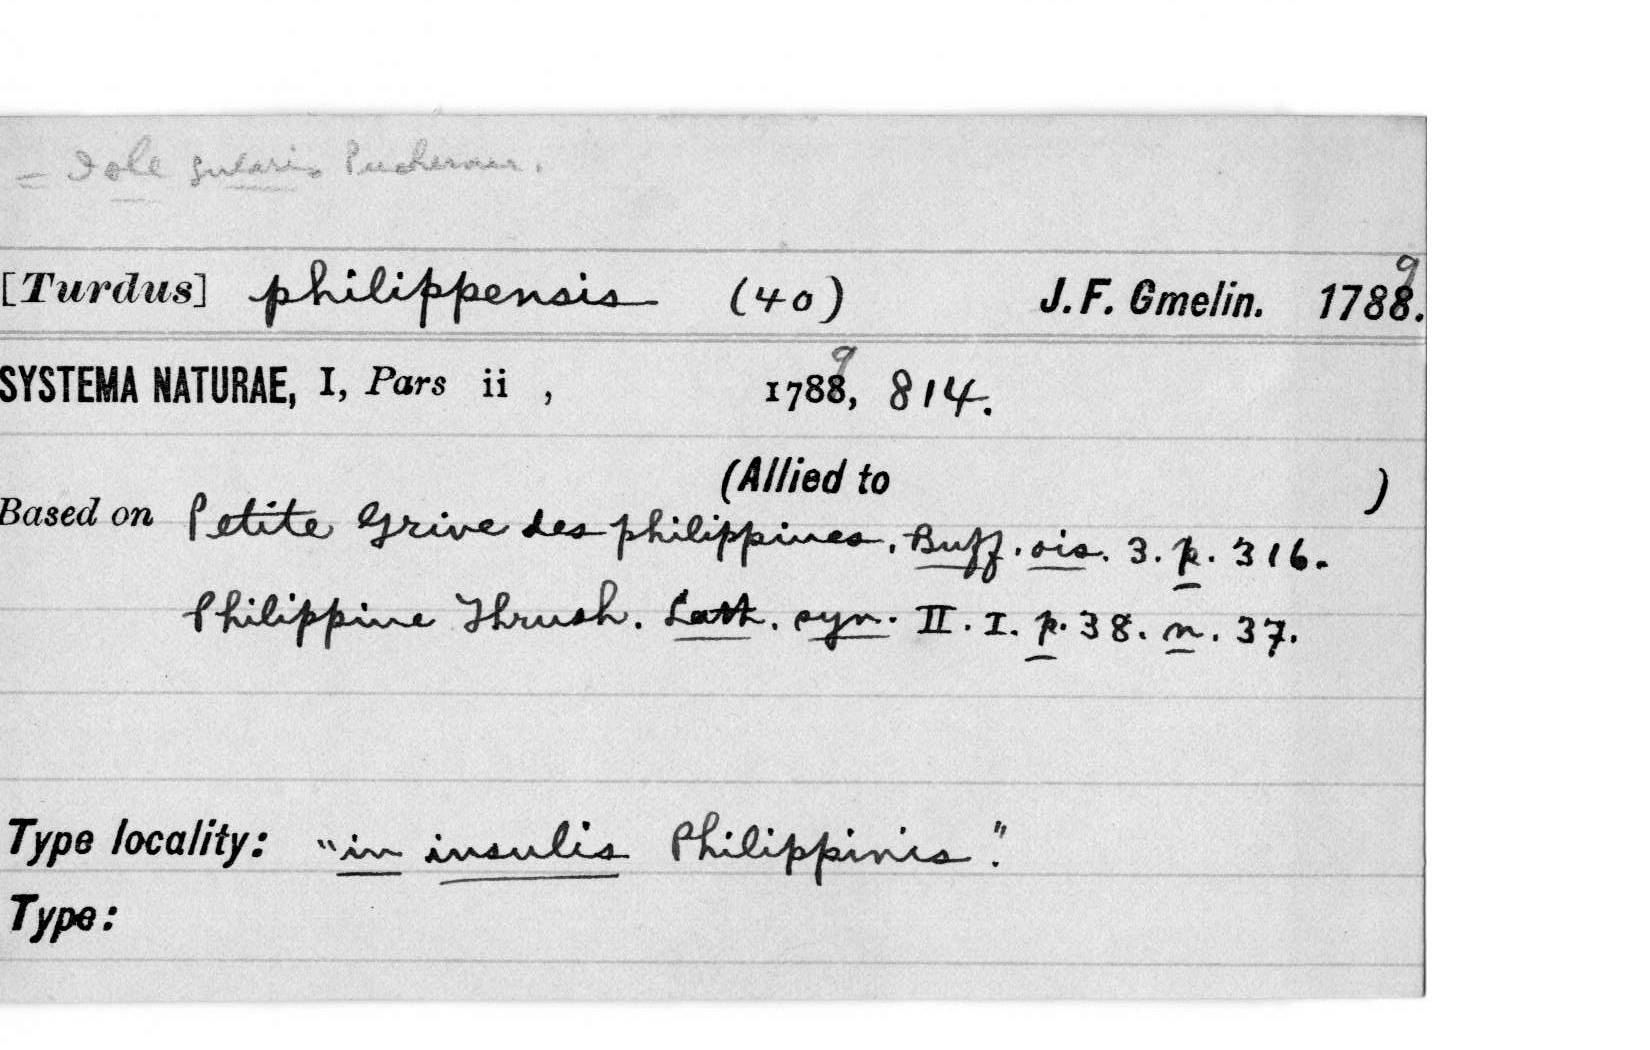 = Iole gularis Pucheran.
[Turdus] philippensis (40) J. F. Gmelin. 1788.
9
SYSTEMA NATURAE, I, Pars ii , 1788, 814.
9
(Allied to )
Based on Petite Grive des philippines. Buff. ois. 3. p. 316.
Philippine Thrush. Lath. syn. II. I. p. 38. n. 37.
Type locality: "in insulis Philippinis".
Type: